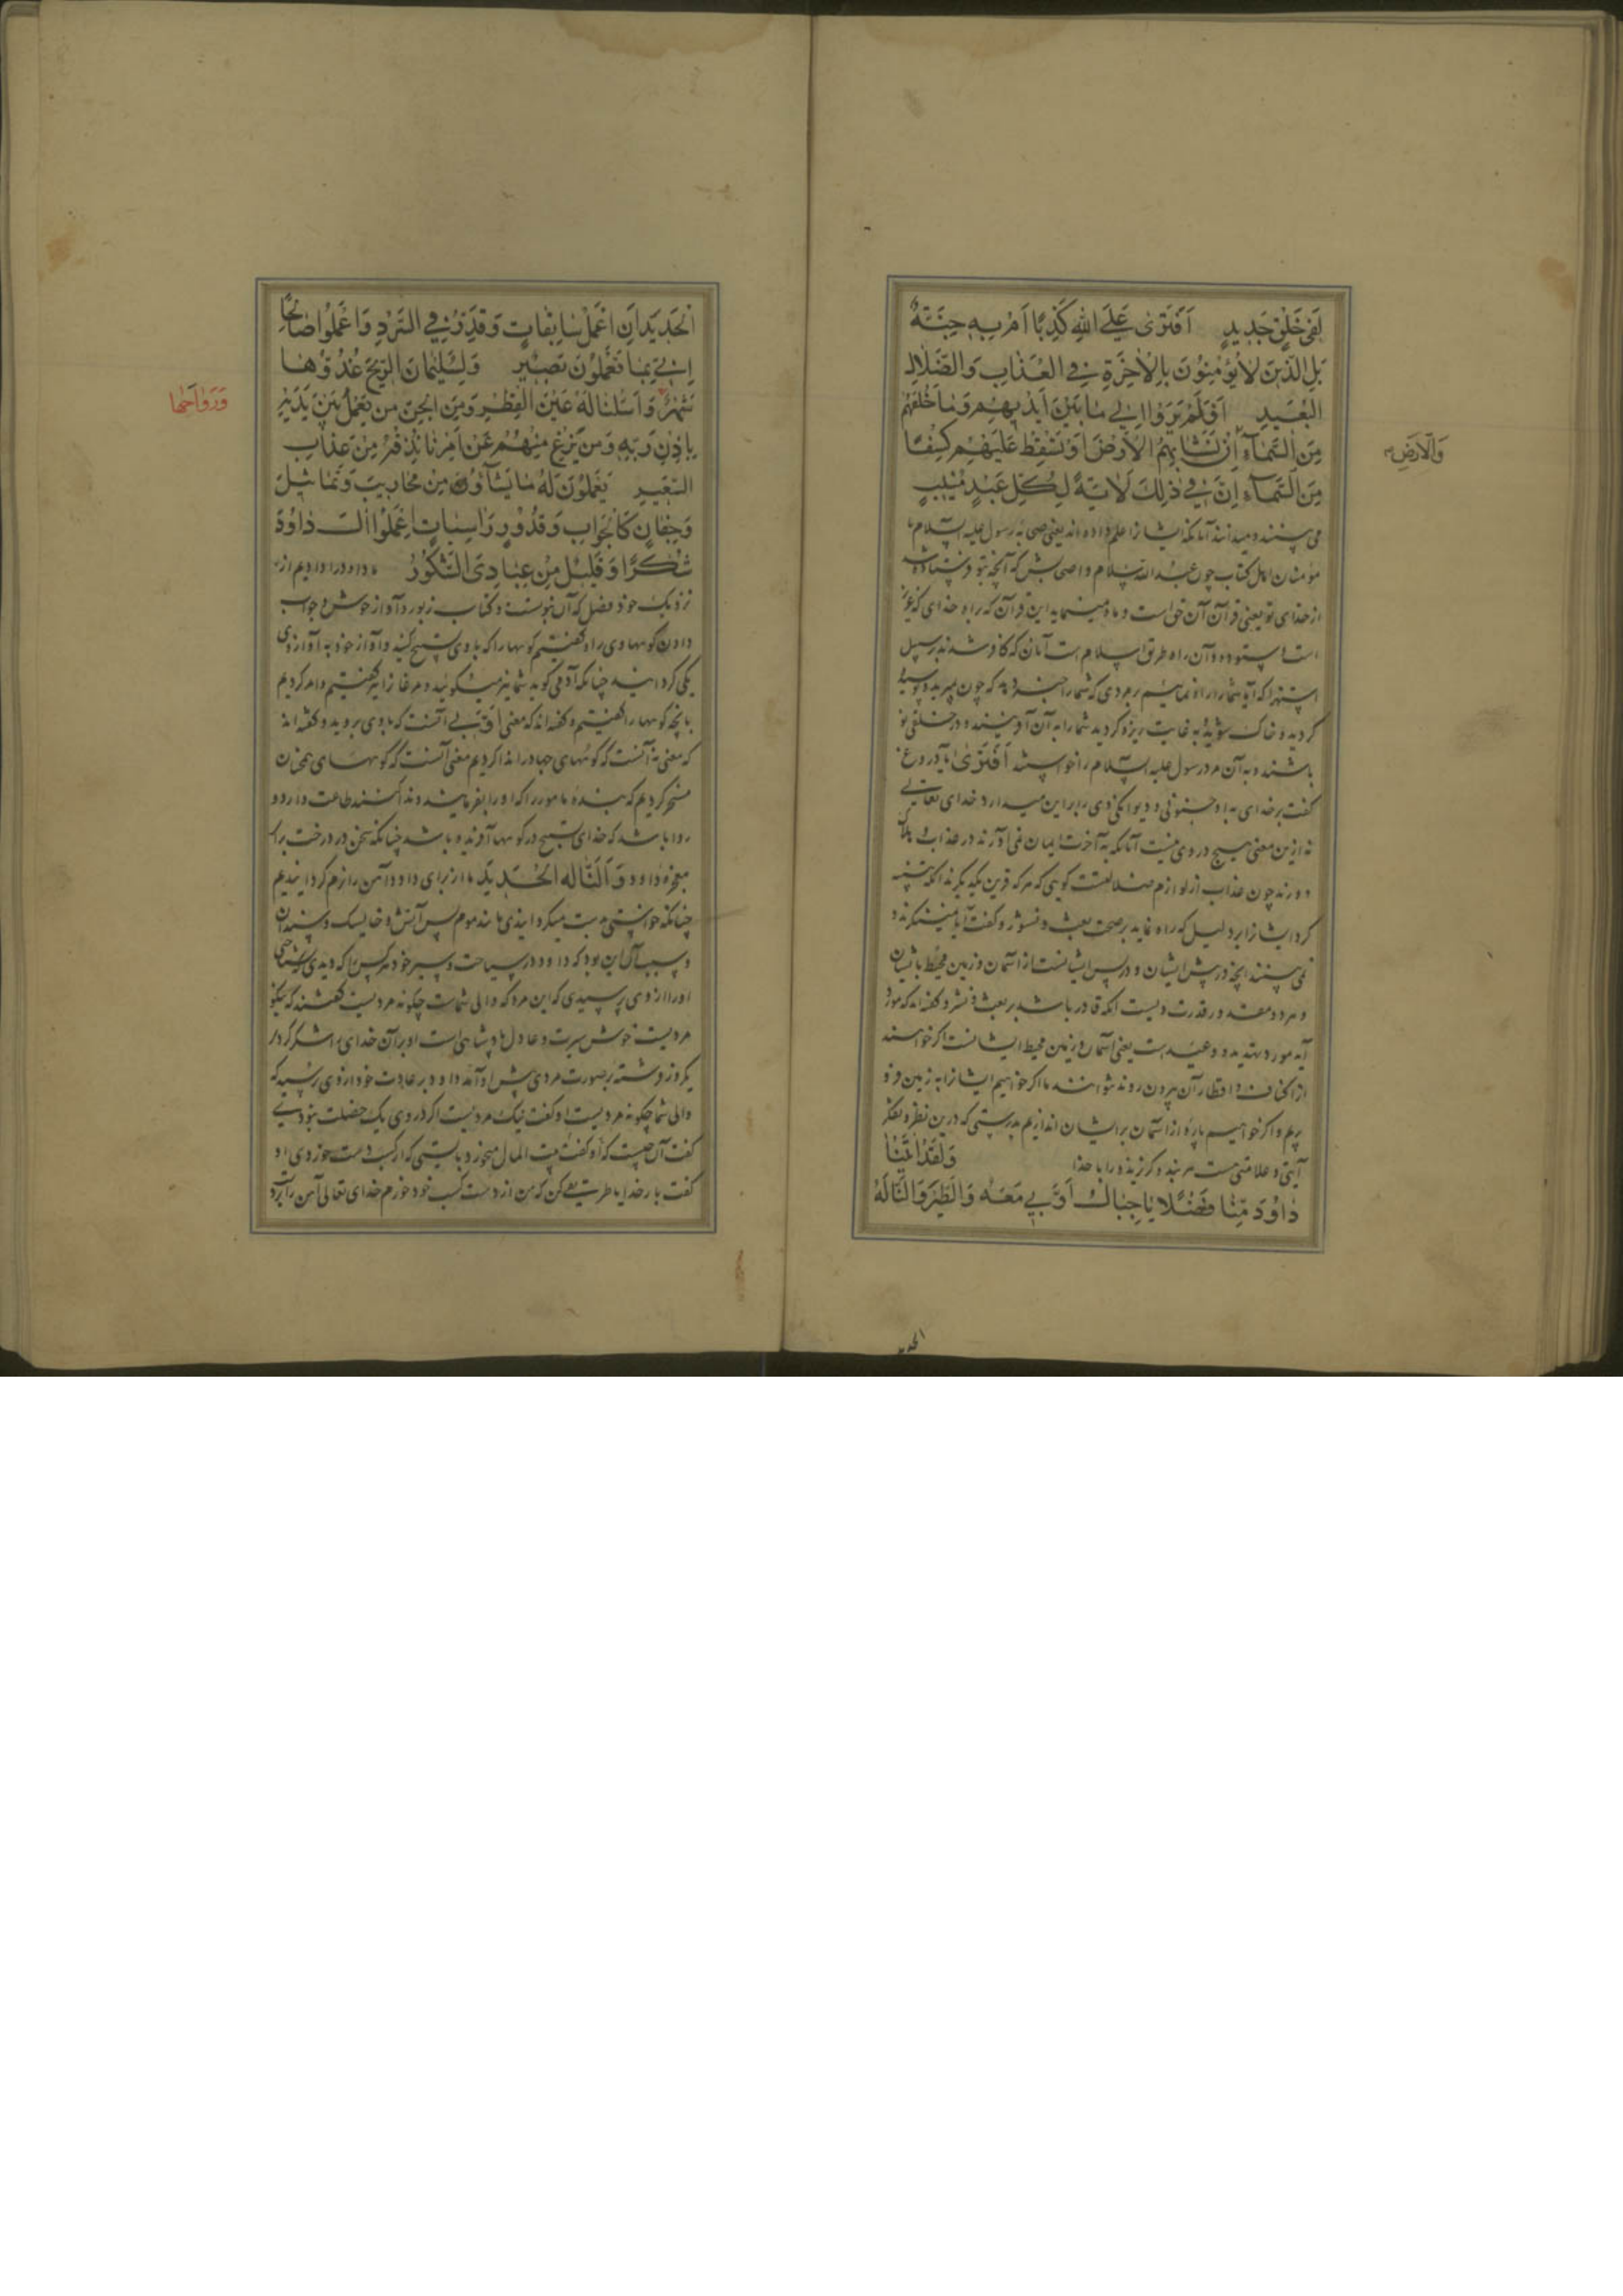 لَفِی خَلْقٍ جَدِیدٍ اَفْتَرٰی عَلَی اللّٰهِ کَذِبًا اَمْ بِهٖ جِنَّةٌ
بَلِ الَّذِینَ لَا یُؤْمِنُونَ بِالْاٰخِرَةِ فِی الْعَذَابِ وَالضَّلَالِ
الْبَعِیدِ اَفَلَمْ یَرَوْا اِلٰی مَا بَیْنَ اَیْدِیهِمْ وَمَا خَلْفَهُمْ
مِنَ السَّمَآءِ اِنْ نَشَأْ بِهِمُ الْاَرْضَ اَوْ نُسْقِطْ عَلَیْهِمْ کِسَفًا
وَالْاَرْضِ
مِنَ السَّمَآءِ اِنَّ فِی ذٰلِکَ لَاٰیَةً لِکُلِّ عَبْدٍ مُنِیبٍ
می بینند و میدانند آنانکه ایشانرا علم داده اند یعنی صحابه رسول علیه السلام یا
مؤمنان اهل کتاب چون عبد الله سلام و اصحابش که آنچه بتو فرستاده
از خدای تو یعنی قرآن آن حق است و راه مینماید این قرآن که راه خدای که عزیز
است و ستوده و آن راه طریق اسلام است آنان که کافر شدند بر سبیل
استهزا که آیا شما را راه نماییم بر مردی که شما را خبر دهد که چون بمیرید و پوسیده
گردید و خاک شوید و به غایت ریزه گردید شما را به آن آفرینند و در خلقی نو
باشند و به آن مرد رسول علیه السلام را خواستند اَفْتَرٰی آیا دروغ
گفت بر خدای یا به او جنونی و دیوانگی
نه ازین معنی هیچ در وی نیست آنانکه به آخرت ایمان نمی آورند در عذاب و هلاک
و ورند چون عذاب از لوازم ضلالتست گویی که هر که قرین یکدیگرند آنکه تنبیه
کرد ایشانرا بر دلیل که راه نماید بر صحت بعث و نشور و گفت آیا نمینگرند و
نمی بینند آنچه در پیش ایشان و در پس ایشانست از آسمان و زمین محیط بایشان
و هر دو معتد در قدرت ویست آنکه قادر باشد بر بعث و نشر و گفته اند که مورد
آیه مورد تهدید و وعید است یعنی آسمان و زمین محیط ایشانست اگر خواهند
از اکناف و اقطار آن بیرون روند نتوانند ما اگر خواهیم ایشانرا به زمین فرو
بریم و اگر خواهیم پاره از آسمان بر ایشان اندازیم بدرستی که درین نظر و تفکر
آیتی و علامتی هست هر بنده گرزنده را با خدا وَلَقَدْ اٰتَیْنَا
دَاوُدَ مِنَّا فَضْلًا یَا جِبَالُ اَوِّبِی مَعَهُ وَالطَّیْرَ وَاَلَنَّا لَهُ
الحدید
الْحَدِیدَ اَنِ اعْمَلْ سَابِغَاتٍ وَقَدِّرْ فِی السَّرْدِ وَاعْمَلُوا صَالِحًا
اِنِّی بِمَا تَعْمَلُونَ بَصِیرٌ وَلِسُلَیْمَانَ الرِّیحَ غُدُوُّهَا
شَهْرٌ وَاَسَلْنَا لَهُ عَیْنَ الْقِطْرِ وَمِنَ الْجِنِّ مَنْ یَعْمَلُ بَیْنَ یَدَیْهِ
وَرَوَاحُهَا
بِاِذْنِ رَبِّهِ وَمَنْ یَزِغْ مِنْهُمْ عَنْ اَمْرِنَا نُذِقْهُ مِنْ عَذَابِ
السَّعِیرِ یَعْمَلُونَ لَهُ مَا یَشَآءُ مِنْ مَحَارِیبَ وَتَمَاثِیلَ
وَجِفَانٍ کَالْجَوَابِ وَقُدُورٍ رَاسِیَاتٍ اِعْمَلُوا اٰلَ دَاوُدَ
شُکْرًا وَقَلِیلٌ مِنْ عِبَادِیَ الشَّکُورُ ما داود را دادیم از
نزدیک خود فضل که آن نبوتست و کتاب زبور و آواز خوش و جواب
دادن کوهها وی را و گفتیم کوهها را که با وی تسبیح کنید و آواز خود به آواز وی
یکی گردانید چنانکه آدمی گوید شما نیز میگویید و مرغانرا نیز گفتیم و امر کردیم
بآنچه کوهها را گفتیم و گفته اند که معنی اَوِّبِی آنست که با وی بروید و گفته اند
که معنی نه آنست که کوههای جماد را ندا کردیم معنی آنست که کوههای همچنان
مسخر کردیم که بنده مامور را که او را بفرمایند و ندا کنند طاعت دارد و
روا باشد که خدای تسبیح در کوهها آفریده باشد چنانکه سخن در درخت برای
معجزه داود وَاَلَنَّا لَهُ الْحَدِیدَ ما از برای داود آهن را نرم گردانیدیم
چنانکه خواستی بدست میگردانیدی مانند موم پس آتش و خایسک و سندان
و سبب آن این بود که داود در سیاحت و سیر خود هر کس را که دیدی که نشناختی
او را از وی پرسیدی که این مرد که والی شماست چگونه مردیست گفتندی که نیکو
مردیست خوش سیرت و عادل پادشاهی است او بر آن خدای را شکر کردی
یکروز فرشته بر صورت مردی پیش او آمد داود بر عادت خود از وی پرسید که
والی شما چگونه مردیست او گفت نیک مردیست اگر در وی یک خصلت نبودی
گفت آن چیست که او گفت بیت المال میخورد بایستی که از کسب دست خوردی او
گفت بار خدایا طریقتی کن که من از دست کسب خود خورم خدای تعالی آهن را بر